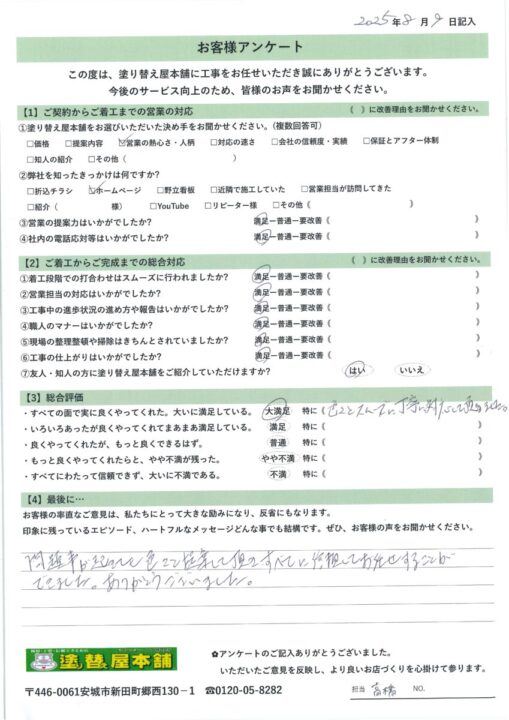 2025年8月9日記入
お客様アンケート
この度は、塗り替え屋本舗に工事をお任せいただき誠にありがとうございます。
今後のサービス向上のため、皆様のお声をお聞かせください。
【1】ご契約からご着工までの営業の対応 （　）に改善理由をお聞かせください。
①塗り替え屋本舗をお選びいただいた決め手をお聞かせください。（複数回答可）
□価格 □提案内容 ☑営業の熱心さ・人柄 □対応の速さ □会社の信頼度・実績 □保証とアフター体制
□知人の紹介 □その他（　）
②弊社を知ったきっかけは何ですか?
□折込チラシ ☑ホームページ □野立看板 □近隣で施工していた □営業担当が訪問してきた
□紹介（　様） □YouTube □リピーター様 □その他（　）
③営業の提案力はいかがでしたか? 満足ー普通ー要改善（　）
④社内の電話応対等はいかがでしたか? 満足ー普通ー要改善（　）
【2】ご着工からご完成までの総合対応 （　）に改善理由をお聞かせください。
①着工段階での打合わせはスムーズに行われましたか? 満足ー普通ー要改善（　）
②営業担当の対応はいかがでしたか? 満足ー普通ー要改善（　）
③工事中の進歩状況の進め方や報告はいかがでしたか? 満足ー普通ー要改善（　）
④職人のマナーはいかがでしたか? 満足ー普通ー要改善（　）
⑤現場の整理整頓や掃除はきちんとされていましたか? 満足ー普通ー要改善（　）
⑥工事の仕上がりはいかがでしたか? 満足ー普通ー要改善（　）
⑦友人・知人の方に塗り替え屋本舗をご紹介していただけますか? はい いいえ
【3】総合評価
・すべての面で実に良くやってくれた。大いに満足している。 大満足 特に（色々とスムーズに丁寧に対応して頂きました。
・いろいろあったが良くやってくれてまあまあ満足している。 満足 特に（　）
・良くやってくれたが、もっと良くできるはず。 普通 特に（　）
・もっと良くやってくれたらと、やや不満が残った。 やや不満 特に（　）
・すべてにわたって信頼できず、大いに不満である。 不満 特に（　）
【4】最後に…
お客様の率直なご意見は、私たちにとって大きな励みになり、反省にもなります。
印象に残っているエピソード、ハートフルなメッセージどんな事でも結構です。ぜひ、お客様の声をお聞かせください。
問題事が起こっても色々と提案して頂き すべてに信頼してお任せすることが
できました。ありがとうございました。
塗替屋本舗
✿アンケートのご記入ありがとうございました。
いただいたご意見を反映し、より良いお店づくりを心掛けて参ります。
〒446-0061安城市新田町郷西130－1 ☎0120-05-8282
担当 高橋 NO.